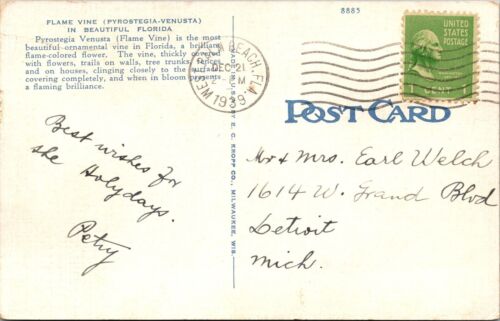 FLAME VINE (PYROSTEGIA-VENUSTA)
IN BEAUTIFUL FLORIDA
Pyrostegia Venusta (Flame Vine) is the most
beautiful ornamental vine in Florida, a brilliant
flame-colored flower. The vine, thickly covered
with flowers, trails on walls, tree trunks, fences
and on houses, clinging closely to the surface
covering completely, and when in bloom presents
a flaming brilliance.
8885
WEST PALM BEACH, FLA.
DEC 21
2 PM
1939
UNITED
STATES
POSTAGE
1 CENT 1
POST CARD
MADE ONLY BY E. C. KROPP CO., MILWAUKEE, WIS.
Best wishes for
the Holydays.
Petry
Mr & Mrs. Earl Welch
1614 W. Grand Blvd
Detroit
Mich.